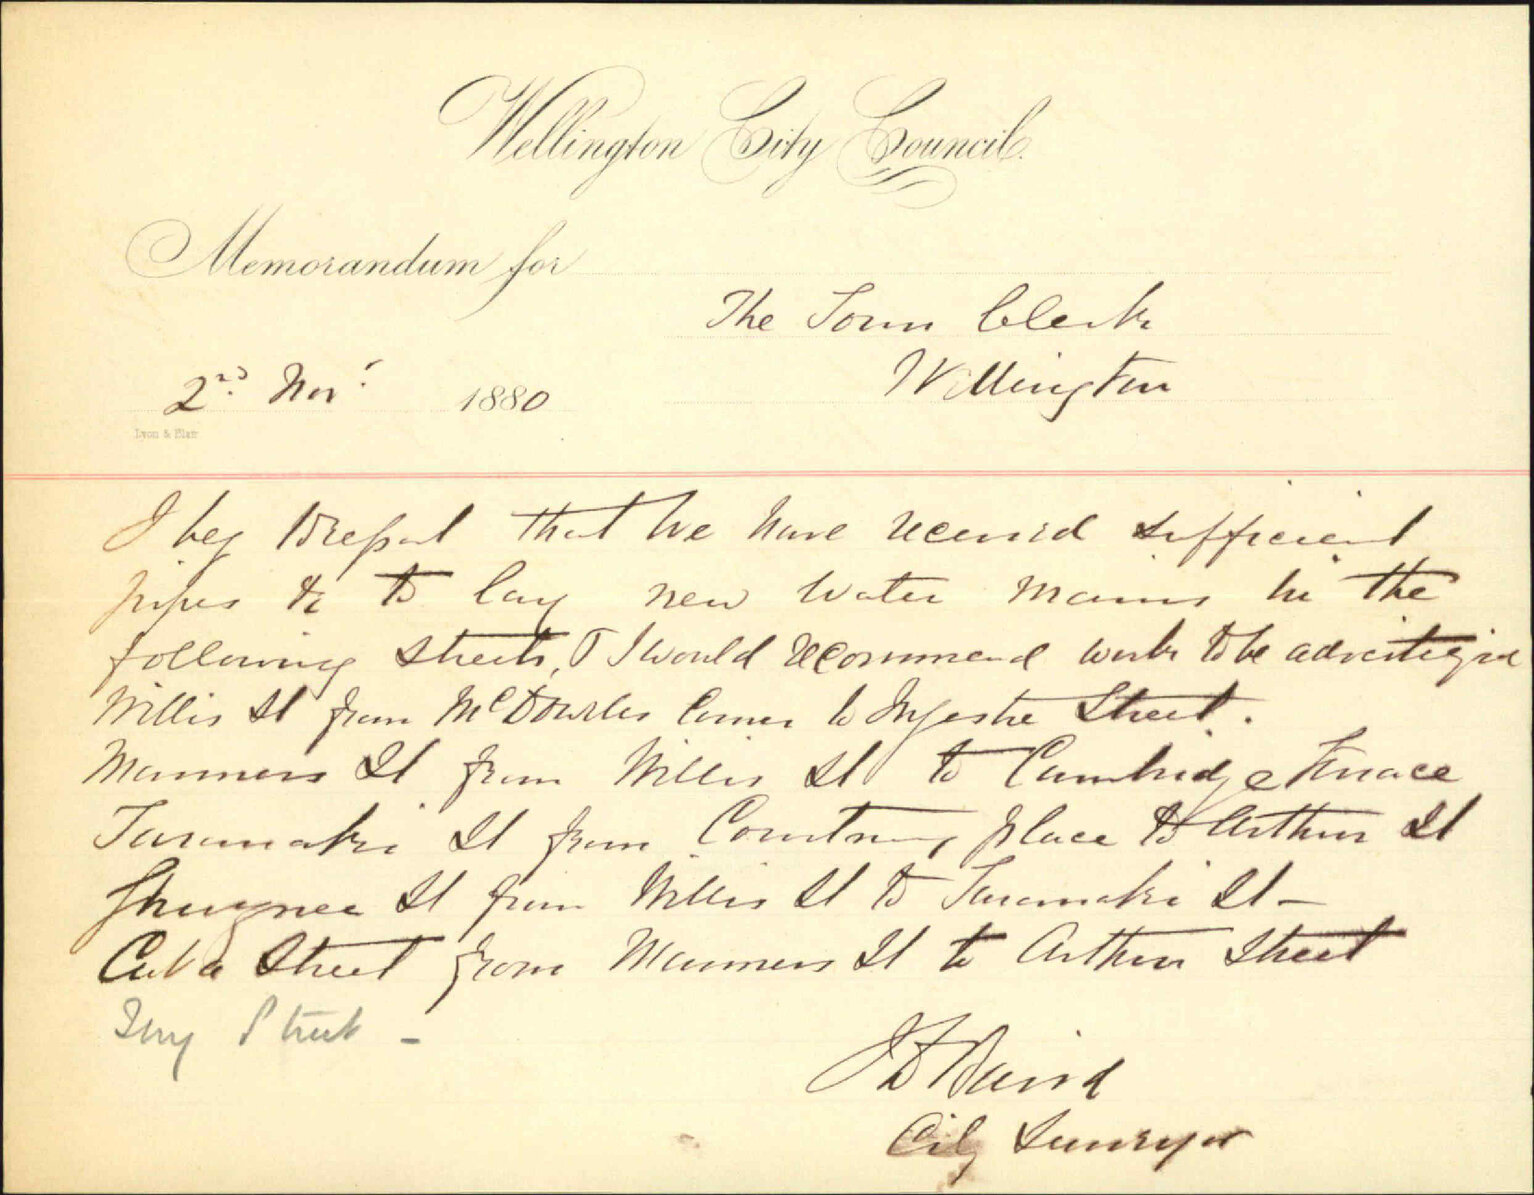 Wellington City Council.
Memorandum for
The Town Clerk
Wellington
2nd Nov. 1880
Lyon & Blair
I beg to report that we have received sufficient
pipes &c to lay new water mains in the
following streets, & I would recommend work to be advertized
Willis St from McDowells Corner to Ingestre Street.
Manners St from Willis St to Cambridge Terrace
Taranaki St from Courtney place to Arthur St
Ghuznee St from Willis St to Taranaki St -
Cuba Street from Manners St to Arthur Street
Tory Street -
J D Baird
City Surveyor